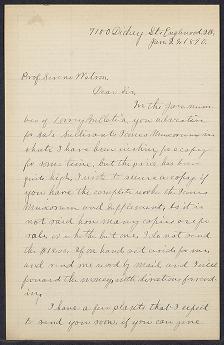 7100 Dickey St. Englewood Ill.
Jan. 2, 1890.
Prof. Sereno Watson,
Dear Sir,
In the Jan. num-
ber of Torrey Bulletin, you advertise
for Sale Sullivants Icones Muscorum
I have been wishing for a copy
for some time, but the price has been
quite high. I wish to secure a copy if
you have the complete work the Icones
Muscorum and Supplement, As it is
not said how many copies are for
sale or whether but one, I do not send
the . If on hand set aside for me,
and send me word by mail and I will
forward the money with directions for send-
ing.
I have a few plants that I expect
to send you soon, if you can give